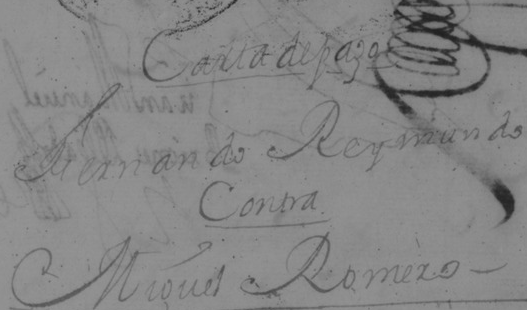 Carta de pago
Hernando Reymundo
Contra
Miguel Romero